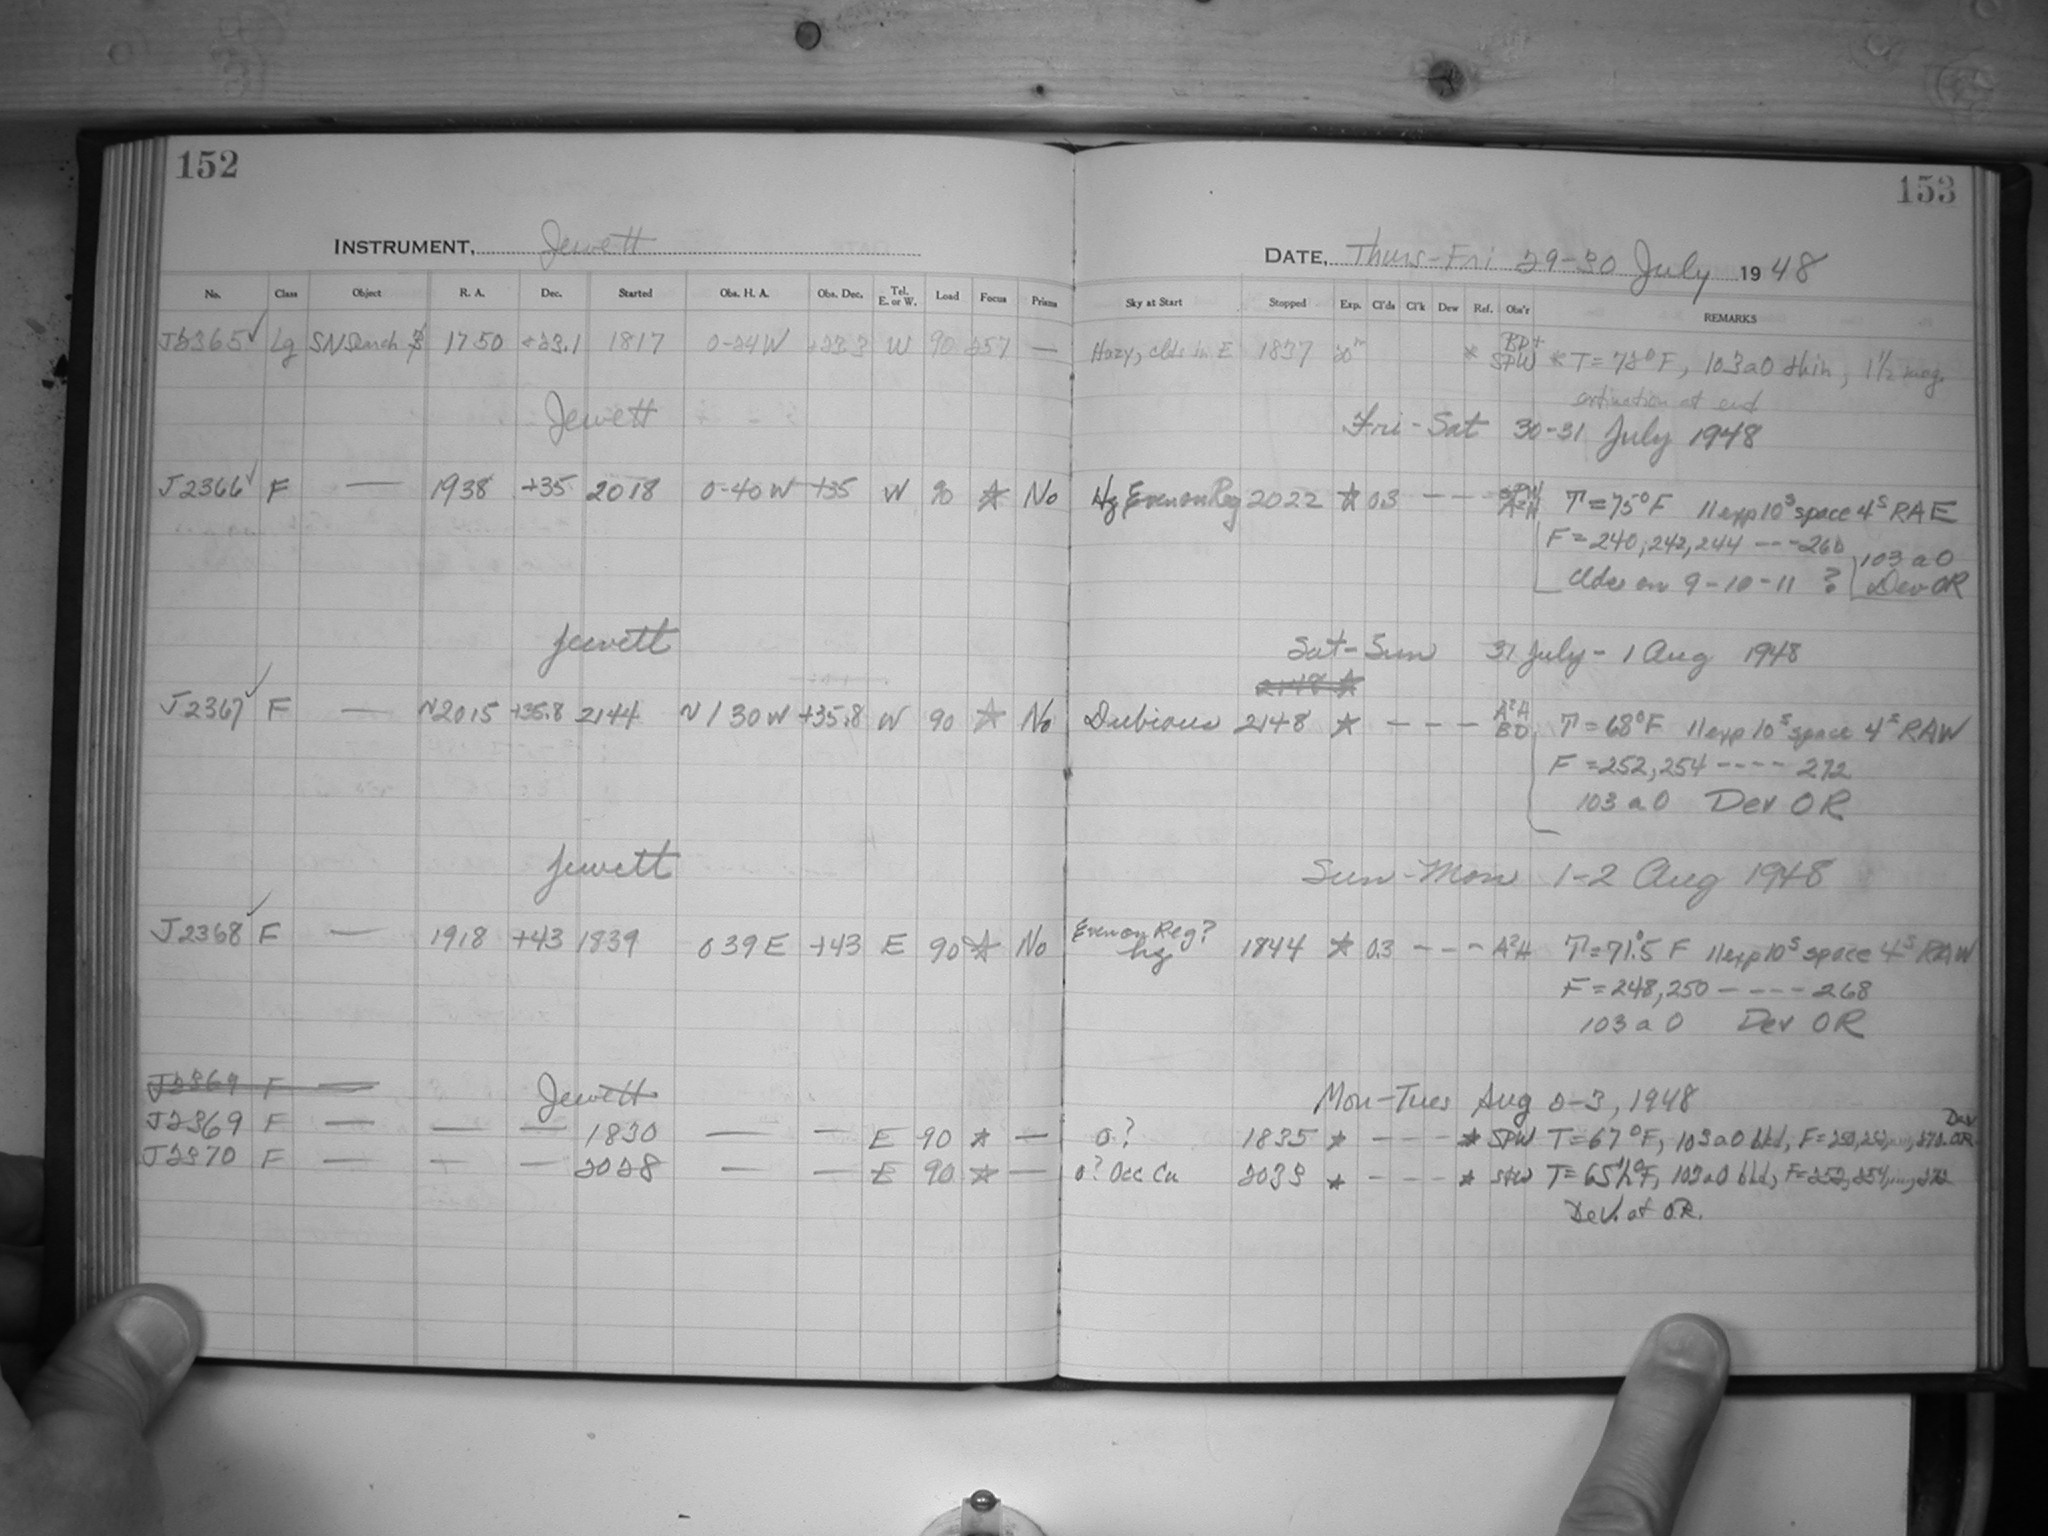 152
153
INSTRUMENT, Jewett
DATE, Thurs-Fri 29-30 July 1948
No. Class Object R. A. Dec. Started Obs. H. A. Obs. Dec. Tel. E. or W. Load Focus Prism Sky at Start Stopped Exp. Cl'ds Cl'k Dew Ref. Obs'r REMARKS
J2365 ✓ Lg SN Search 1750 +23.1 1817 0-24W +23.3 W 90 257 — Hazy, clds in E 1837 20m * BD+ SPW * T=72°F, 103a0 thin, 1½ mag.
at end
Jewett Fri-Sat 30-31 July 1948
J2366 ✓ F — 1938 +35 2018 0-40W +35 W 90 ☆ No Hz Even on Reg 2022 ☆ 0.3 - - - SPW A²H T=75°F 11 exp 10s space 4s RAE
F=240,242,244 --- 260 103 a O
Clds on 9-10-11 ? Dev OR
Jewett Sat-Sun 31 July-1 Aug 1948
2148 ☆
J2367 ✓ F — ~2015 +35.8 2144 ~1 30W +35.8 W 90 ☆ No Dubious 2148 ☆ - - - A²H BD T=68°F 11 exp 10s space 4s RAW
F=252,254 ---- 272
103 a O Dev OR
Jewett Sun-Mon 1-2 Aug 1948
J2368 ✓ F — 1918 +43 1839 0 39 E +43 E 90 ☆ No Even on Reg? hz 1844 ☆ 0.3 - - - A²H T=71.5 F 11 exp 10s space 4s RAW
F=248,250 ---- 268
103 a O Dev OR
J2369 F —
Jewett Mon-Tues Aug 2-3, 1948
J2369 F — — — 1830 — — E 90 * — 0? 1835 * - - - * SPW T=67°F, 103a0 bkd, F=250,252,...,270. Dev OR
J2370 F — — — 2028 — — E 90 * — 0? Occ Cu 2033 * - - - * SPW T=65½°F, 103a0 bkd, F=252,254,...,272
Dev. at O.R.